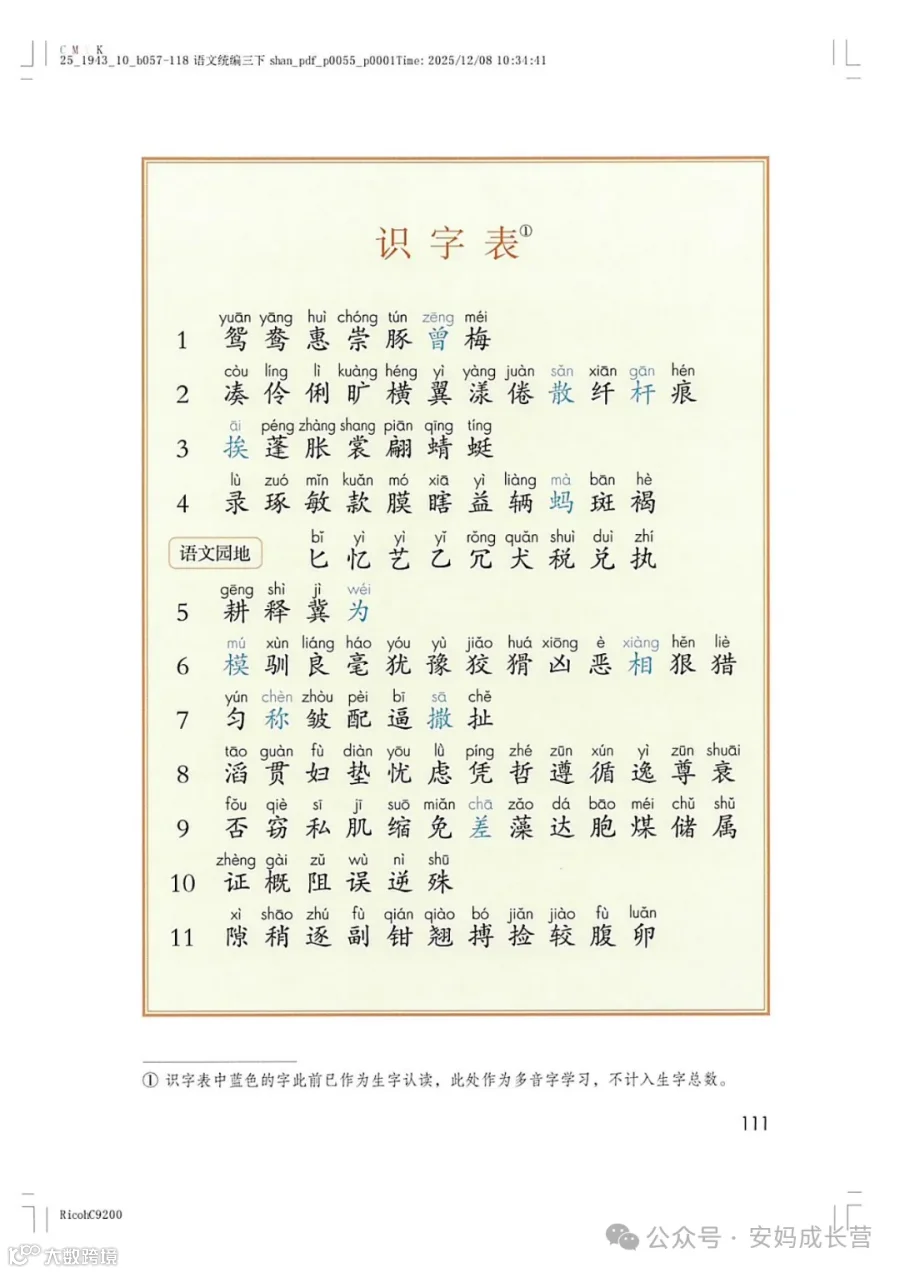 C M Y K
25_1943_10_b057-118 语文统编三下 shan_pdf_p0055_p0001Time: 2025/12/08 10:34:41
识字表①
yuān yāng huì chóng tún zēng méi
1 鸳 鸯 惠 崇 豚 曾 梅
còu líng lì kuàng héng yì yàng juàn sǎn xiān gān hén
2 凑 伶 俐 旷 横 翼 漾 倦 散 纤 杆 痕
āi péng zhàng shang piān qīng tíng
3 挨 蓬 胀 裳 翩 蜻 蜓
lù zuó mǐn kuǎn mó xiā yì liàng mà bān hè
4 录 琢 敏 款 膜 瞎 益 辆 蚂 斑 褐
bǐ yì yì yǐ rǒng quǎn shuì duì zhí
语文园地 匕 忆 艺 乙 冗 犬 税 兑 执
gēng shì jì wéi
5 耕 释 冀 为
mú xùn liáng háo yóu yù jiǎo huá xiōng è xiàng hěn liè
6 模 驯 良 毫 犹 豫 狡 猾 凶 恶 相 狠 猎
yún chèn zhòu pèi bī sā chě
7 匀 称 皱 配 逼 撒 扯
tāo guàn fù diàn yōu lǜ píng zhé zūn xún yì zūn shuāi
8 滔 贯 妇 垫 忧 虑 凭 哲 遵 循 逸 尊 衰
fǒu qiè sī jī suō miǎn chā zǎo dá bāo méi chǔ shǔ
9 否 窃 私 肌 缩 免 差 藻 达 胞 煤 储 属
zhèng gài zǔ wù nì shū
10 证 概 阻 误 逆 殊
xì shāo zhú fù qián qiào bó jiǎn jiào fù luǎn
11 隙 稍 逐 副 钳 翘 搏 捡 较 腹 卵
① 识字表中蓝色的字此前已作为生字认读，此处作为多音字学习，不计入生字总数。
111
RicohC9200
大数跨境
公众号 · 安妈成长营